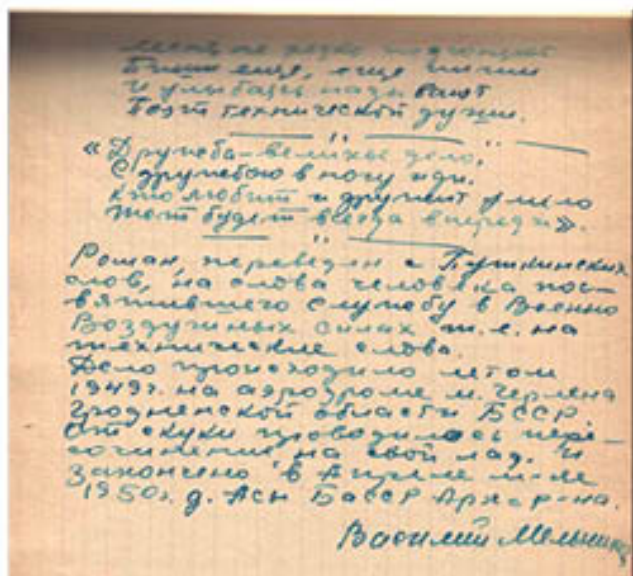 меня не редко
Пиши еще, еще пиши
И улыбаясь назывют
Поэт технической души.
«Дружба – великое дело,
С дружбою в ногу иди.
Кто любит и дружит умело
Тот будет всегда впереди».
Роман, переведен с Пушкинских
слов, на слова человека пос-
вятившего службу в Военно
Воздушных силах т.е. на
технические слова.
Дело происходило летом
1949г. на аэродроме м. Черлена
Гродненской области БССР,
От скуки проводилось пере-
сочинение на свой лад. И
закончено в Апреле м-це
1950г. д. Асн БаССР Арх р-на.
Василий Мельников